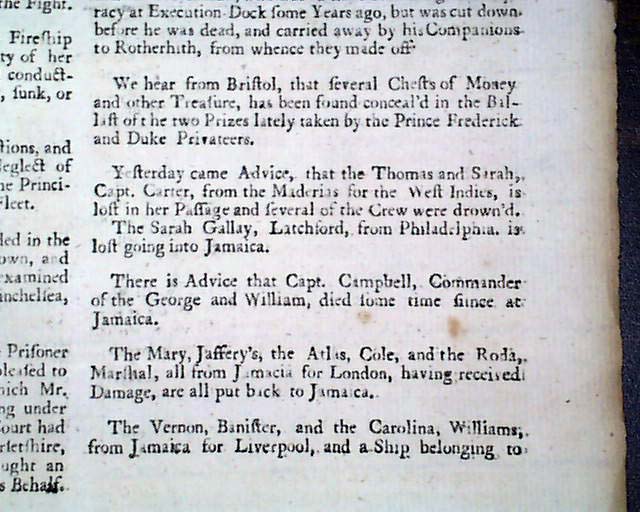 the Fight.
Fireship
ty of her
conduct-
, ſunk, or
ſtions, and
Neglect of
he Princi-
Fleet.
led in the
own, and
examined
inchelſea,
Priſoner
pleaſed to
hich Mr.
ng under
Court had
rſetſhire,
ought an
s Behalf.
racy at Execution-Dock ſome Years ago, but was cut down
before he was dead, and carried away by his Companions
to Rotherhith, from whence they made off.
We hear from Briſtol, that ſeveral Cheſts of Money
and other Treaſure, has been found conceal'd in the Bal-
laſt of the two Prizes lately taken by the Prince Frederick
and Duke Privateers.
Yeſterday came Advice, that the Thomas and Sarah,
Capt. Carter, from the Maderias for the Weſt Indies, is
loſt in her Paſſage and ſeveral of the Crew were drown'd.
The Sarah Gallay, Latchford, from Philadelphia. is
loſt going into Jamaica.
There is Advice that Capt. Campbell, Commander
of the George and William, died ſome time ſince at
Jamaica.
The Mary, Jaffery's, the Atlas, Cole, and the Roda,
Marſhal, all from Jamacia for London, having received
Damage, are all put back to Jamaica.
The Vernon, Baniſter, and the Carolina, Williams,
from Jamaica for Liverpool, and a Ship belonging to